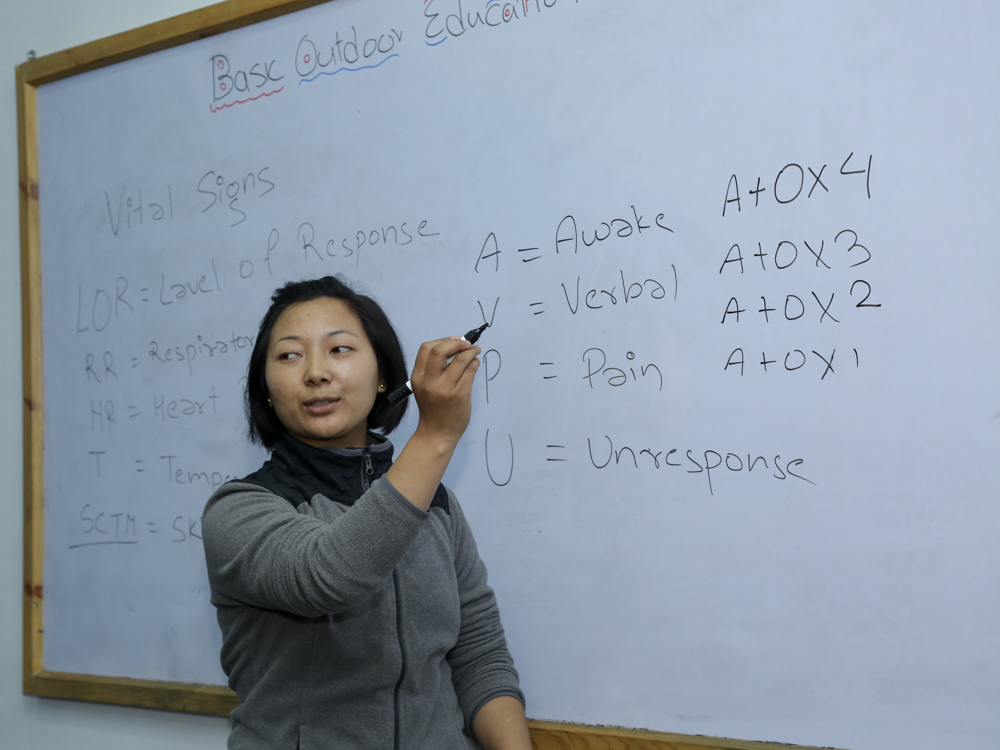 Basic Outdoor Education
Vital Signs
LOR = Level of Response
RR = Respirator
HR = Heart
T = Tempe
SCTM = SK
A = Awake
V = Verbal
P = Pain
U = Unresponse
A+OX4
A+OX3
A+OX2
A+OX1